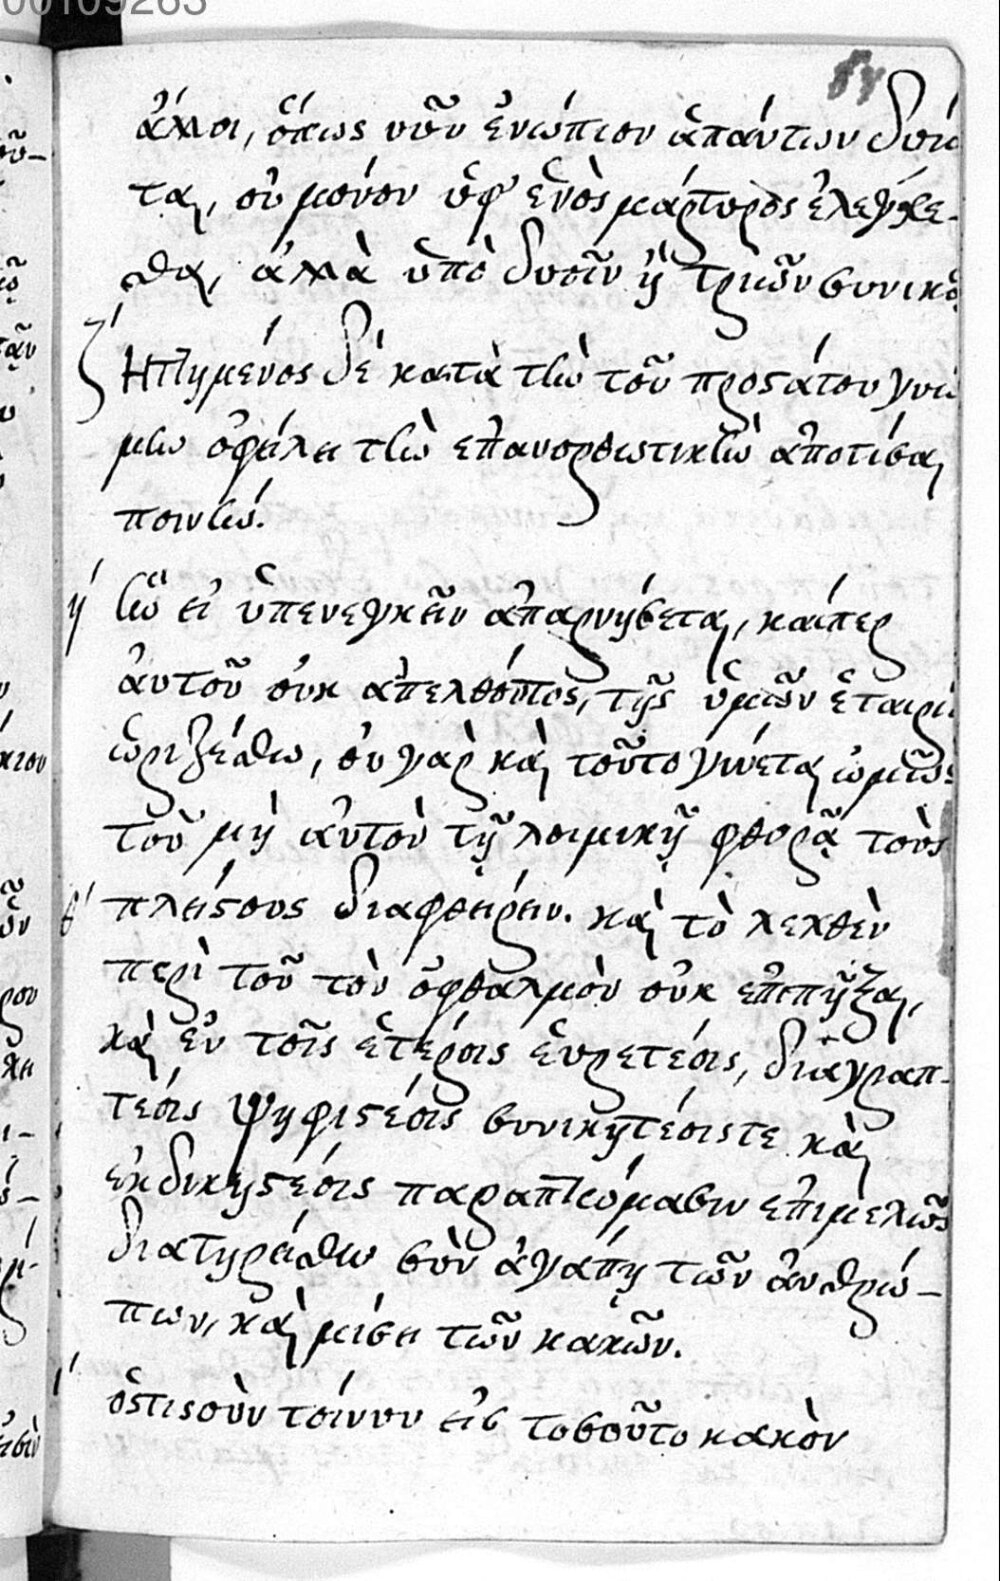 00109263
ἄλλοι, ὅπως νῦν ἐνώπιον ἁπάντων
ται, οὐ μόνον ὑφ' ἑνὸς μάρτυρος ἐλεγχε-
θαι, ἀλλὰ ὑπὸ δυοῖν ἢ τριῶν
ζ΄ Ἡττημένος δὲ κατὰ τὴν τοῦ προστάτου γνώ
μην ὀφείλει τὴν ἐπανορθωτικὴν ἀποτίσαι
ποινήν.
η΄ ἣν εἰ ὑπενεγκεῖν ἀπαρνήσεται, καίπερ
ἀυτοῦ οὐκ ἀπελθόντος, τῆς ὑμῶν ἑταιρί
ὡριζέσθω, οὐ γὰρ καὶ τοῦτο γίνεται ὠμῶς
τοῦ μὴ ἀυτὸν τῇ λοιμικῇ φθορᾷ τοὺς
θ΄ πλείστους διαφθείρειν. καὶ τὸ λελθὲν
περὶ τοῦ τὸν ὀφθαλμὸν οὐκ ἐπιπῆξαι,
καὶ ἐν τοῖς ἑτέροις ἑυρετέοις, διαγραπ-
τέοις ψηφιστέοις συνικητέοις τε καὶ
ἐκδικηστέοις παραπτώμασιν ἐπιμελῶς
διατηρείσθω σὺν ἀγάπῃ τῶν ἀνθρώ-
πων, καὶ μίσει τῶν κακῶν.
ι΄ ὁστισοὺν τοίνυν εἰς τοσοῦτο κακὸν